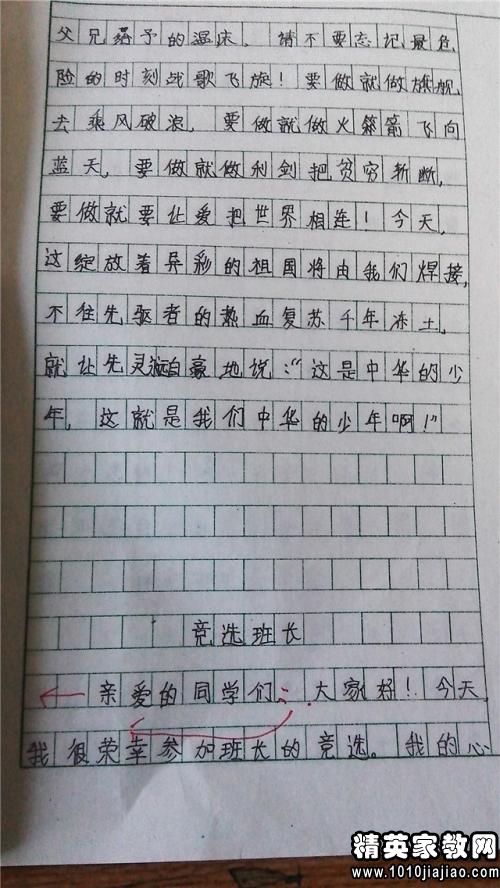 父兄给予的温床，请不要忘记最危
险的时刻战歌飞旋！要做就做旗舰
去乘风破浪，要做就做火箭飞向
蓝天，要做就做利剑把贫穷斩断，
要做就要让爱把世界相连！今天，
这绽放着异彩的祖国将由我们焊接，
不往先驱者的热血复苏千年冻土，
就让先灵自豪地说：“这是中华的少
年，这就是我们中华的少年啊！”
竞选班长
亲爱的同学们：大家好！今天
我很荣幸参加班长的竞选。我的心
精英家教网
www.1010jiajiao.com